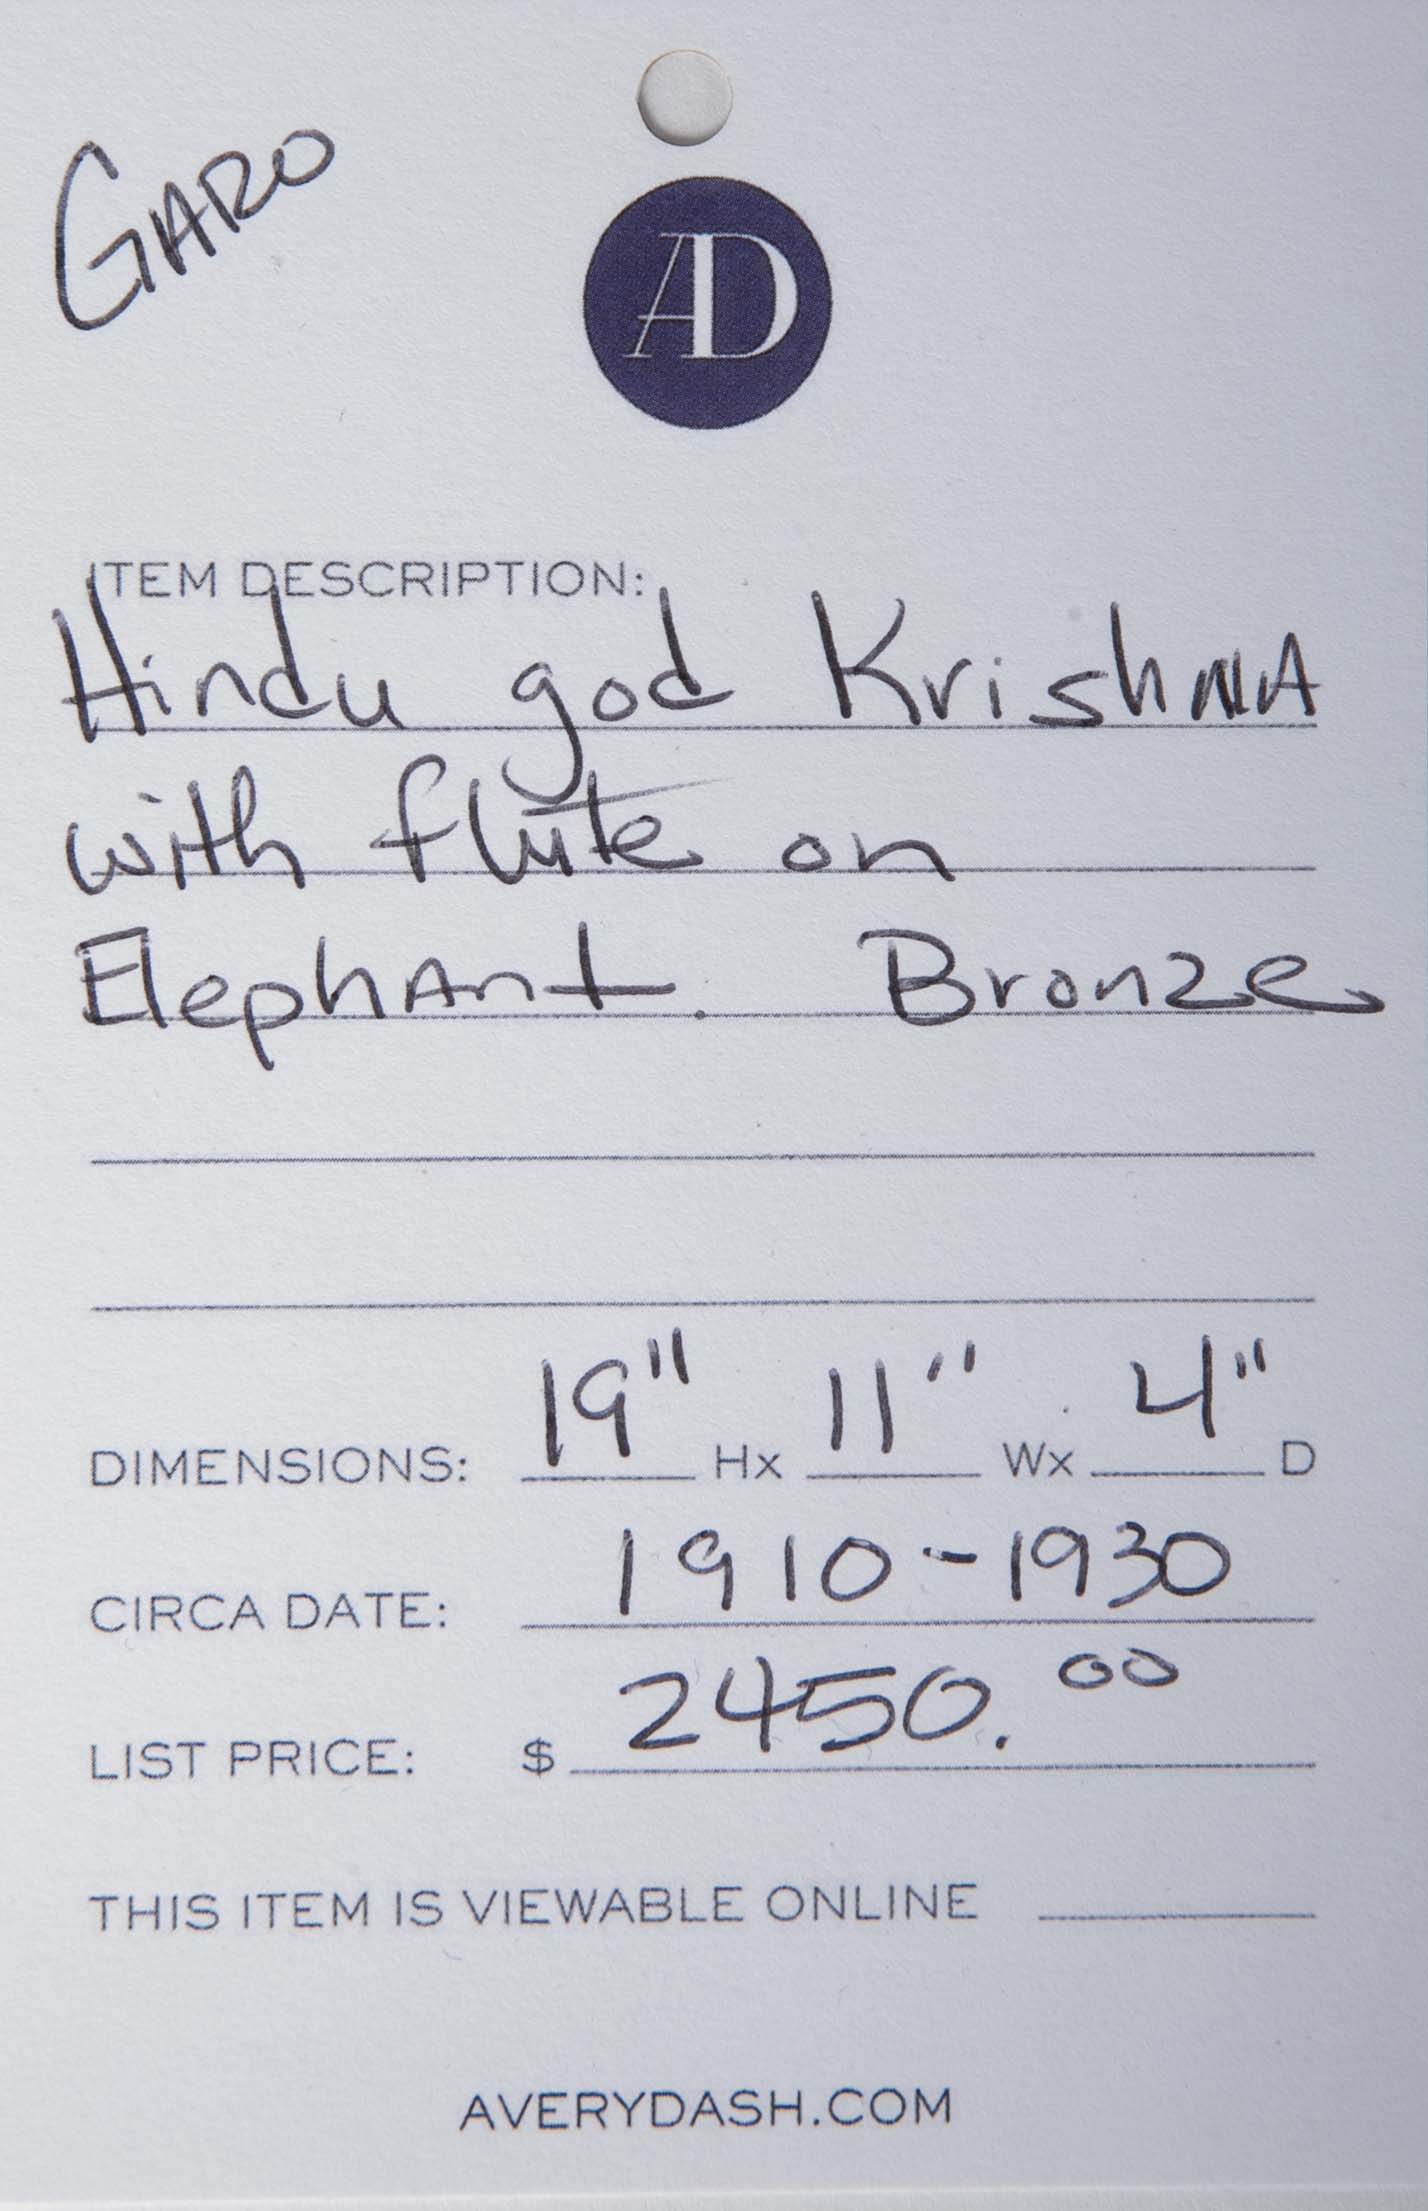 GARO
AD
ITEM DESCRIPTION:
Hindu god KrishnA
with flute on
ElephAnt. Bronze
DIMENSIONS: 19" Hx 11" Wx 4" D
CIRCA DATE: 1910-1930
LIST PRICE: $ 2450.00
THIS ITEM IS VIEWABLE ONLINE
AVERYDASH.COM